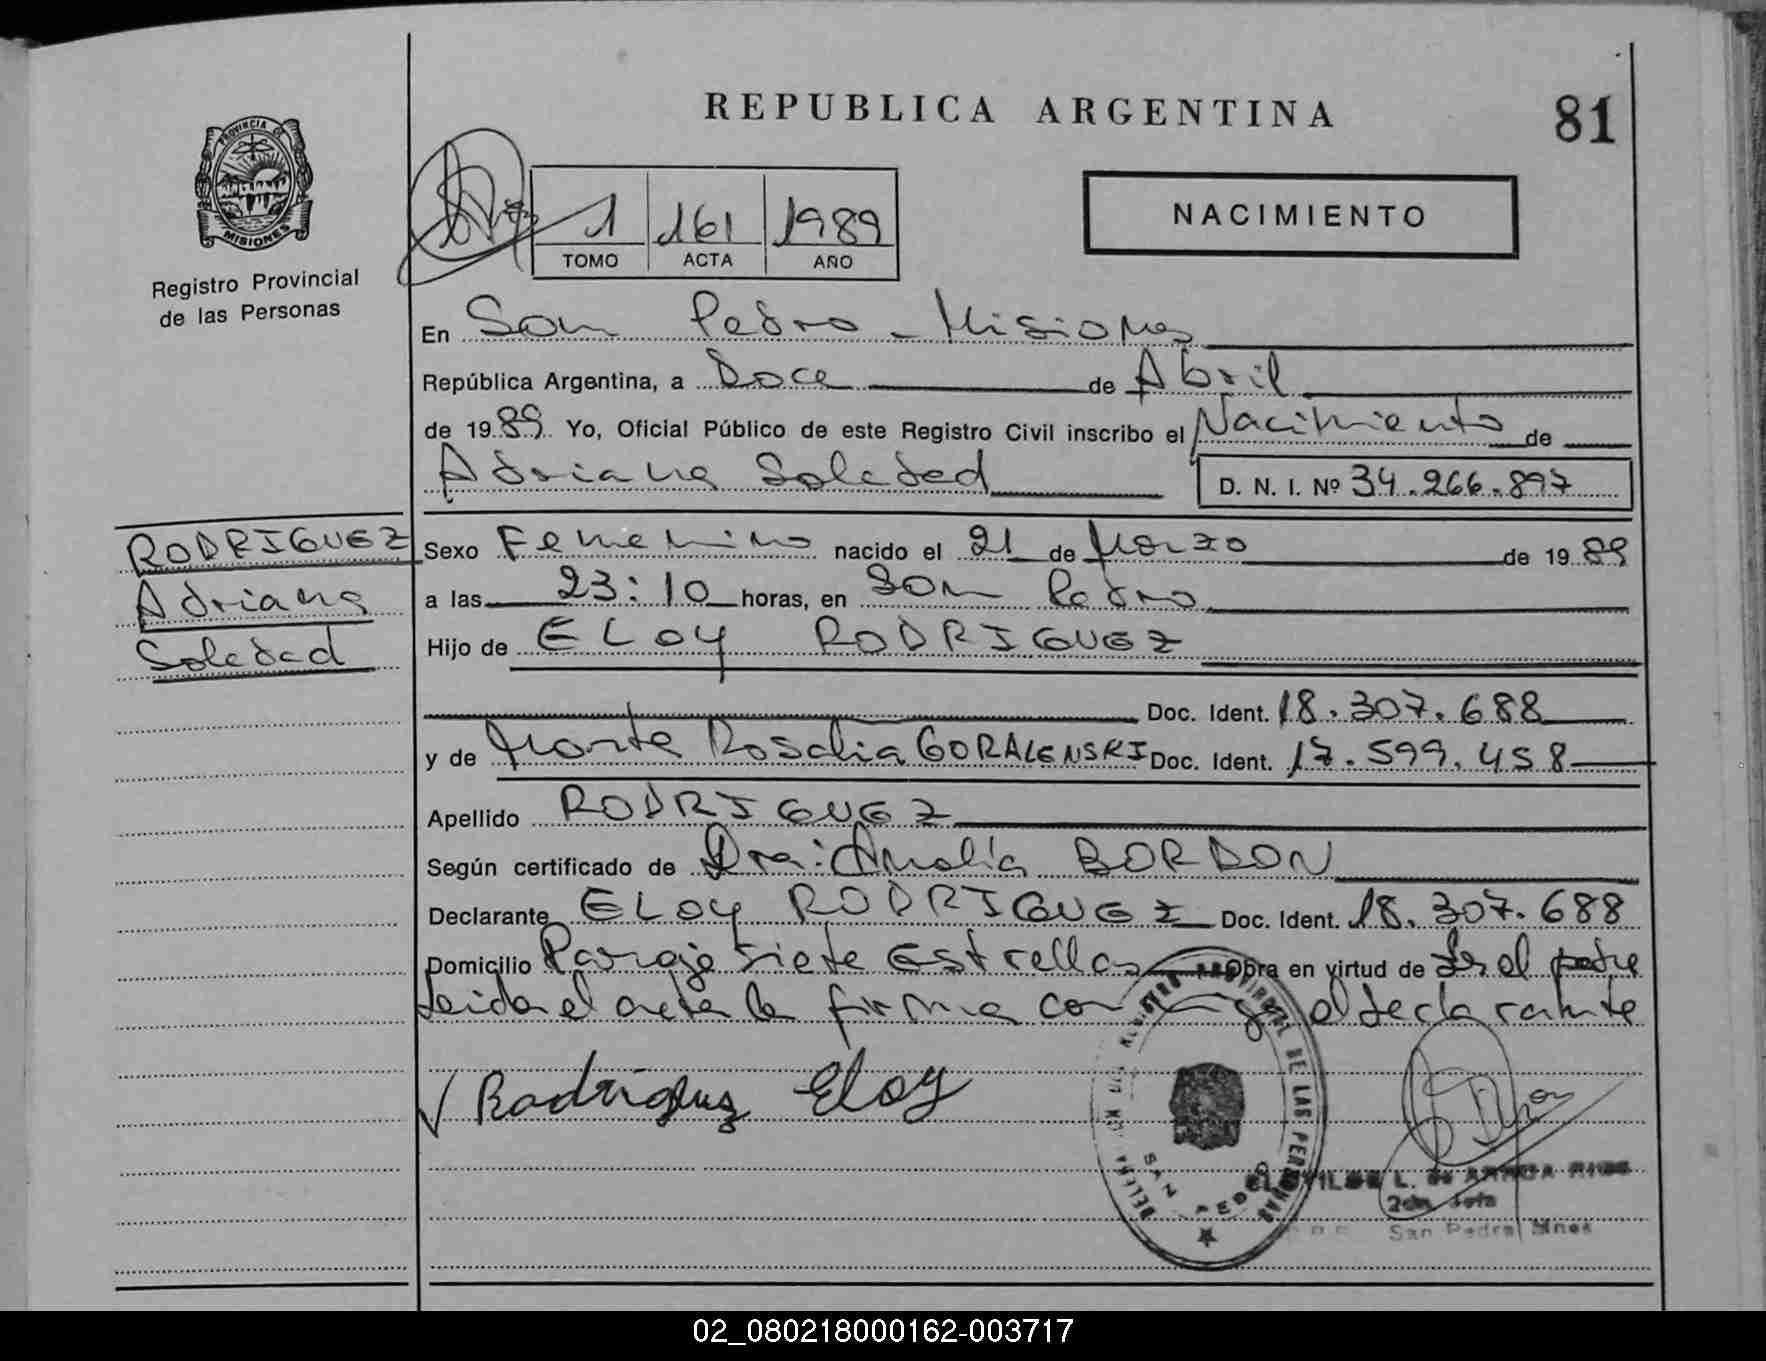 REPUBLICA ARGENTINA
81
PROVINCIA DE
MISIONES
Registro Provincial
de las Personas
1 161 1989
TOMO ACTA AÑO
NACIMIENTO
En San Pedro - Misiones
República Argentina, a Doce de Abril
de 1989. Yo, Oficial Público de este Registro Civil inscribo el Nacimiento de
Adriana Soledad
D. N. I. Nº 34.266.897
RODRIGUEZ
Adriana
Soledad
Sexo Femenino nacido el 21 de Marzo de 1989
a las 23:10 horas, en San Pedro
Hijo de ELOY RODRIGUEZ
Doc. Ident. 18.307.688
y de Marta Rosalia GORALENSKI Doc. Ident. 17.599.458
Apellido RODRIGUEZ
Según certificado de Dra: Amalia BORDON
Declarante ELOY RODRIGUEZ Doc. Ident. 18.307.688
Domicilio Paraje Siete Estrellas Obra en virtud de Ser el padre
Leida el acta la firma con el declarante
Rodriguez Eloy
REGISTRO PROVINCIAL DE LAS PERSONAS
SAN PEDRO
L. de
San Pedro Mnes
02_080218000162-003717